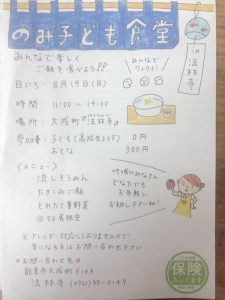 のみ子ども食堂
in 法林寺
みんなで楽しく
ご飯を食べよう!!
みんなで
ワイワイ!
日にち: 8月19日(日)
時間: 11:00～14:00
場所: 大成町 法林寺
参加費: 子ども(高校生以下) 0円
おとな 300円
<メニュー>
・流しそうめん
・たきこみご飯
・とれたて夏野菜
◎50食限定
地域のみなさん
どなたでも
お気軽に
お越し下さいね!
※アレルギー対応しておりませんので
気になる方はお問い合わせ下さい
お問い合わせ先
能美市大成町
法林寺 (0761)55-0149
保険
入ってます